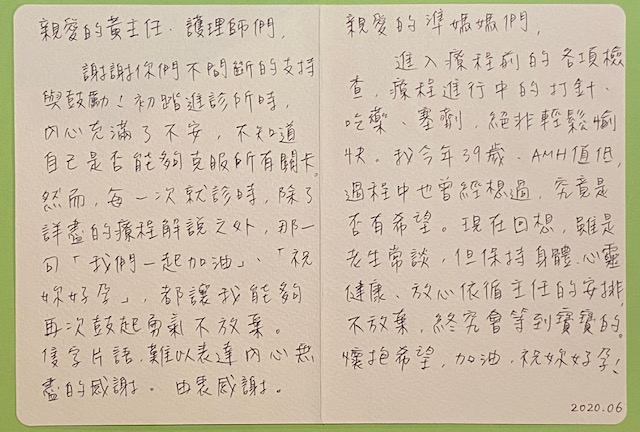 親愛的黃主任、護理師們，
謝謝你們不間斷的支持
與鼓勵！初踏進診所時，
內心充滿了不安，不知道
自己是否能夠克服所有關卡。
然而，每一次就診時，除了
詳盡的療程解說之外，那一
句「我們一起加油」、「祝
妳好孕」，都讓我能夠
再次鼓起勇氣不放棄。
隻字片語，難以表達內心無
盡的感謝。由衷感謝。
親愛的準媽媽們，
進入療程前的各項檢
查，療程進行中的打針、
吃藥、塞劑，絕非輕鬆愉
快。我今年39歲、AMH值低，
過程中也曾經想過，究竟是
否有希望。現在回想，雖是
老生常談，但保持身體、心靈
健康、放心依循主任的安排，
不放棄，終究會等到寶寶的。
懷抱希望，加油，祝妳好孕！
2020.06